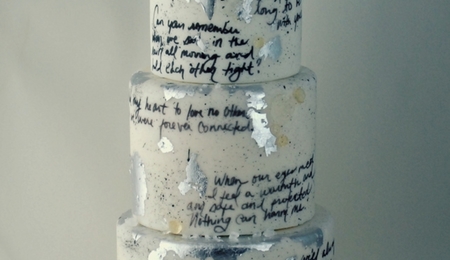 long to
with you
Can you remember
in the
all morning and
each other tight"
my heart to love no other
were forever connected
When our eyes met
I feel a warmth and
safe and protected
Nothing can harm me.